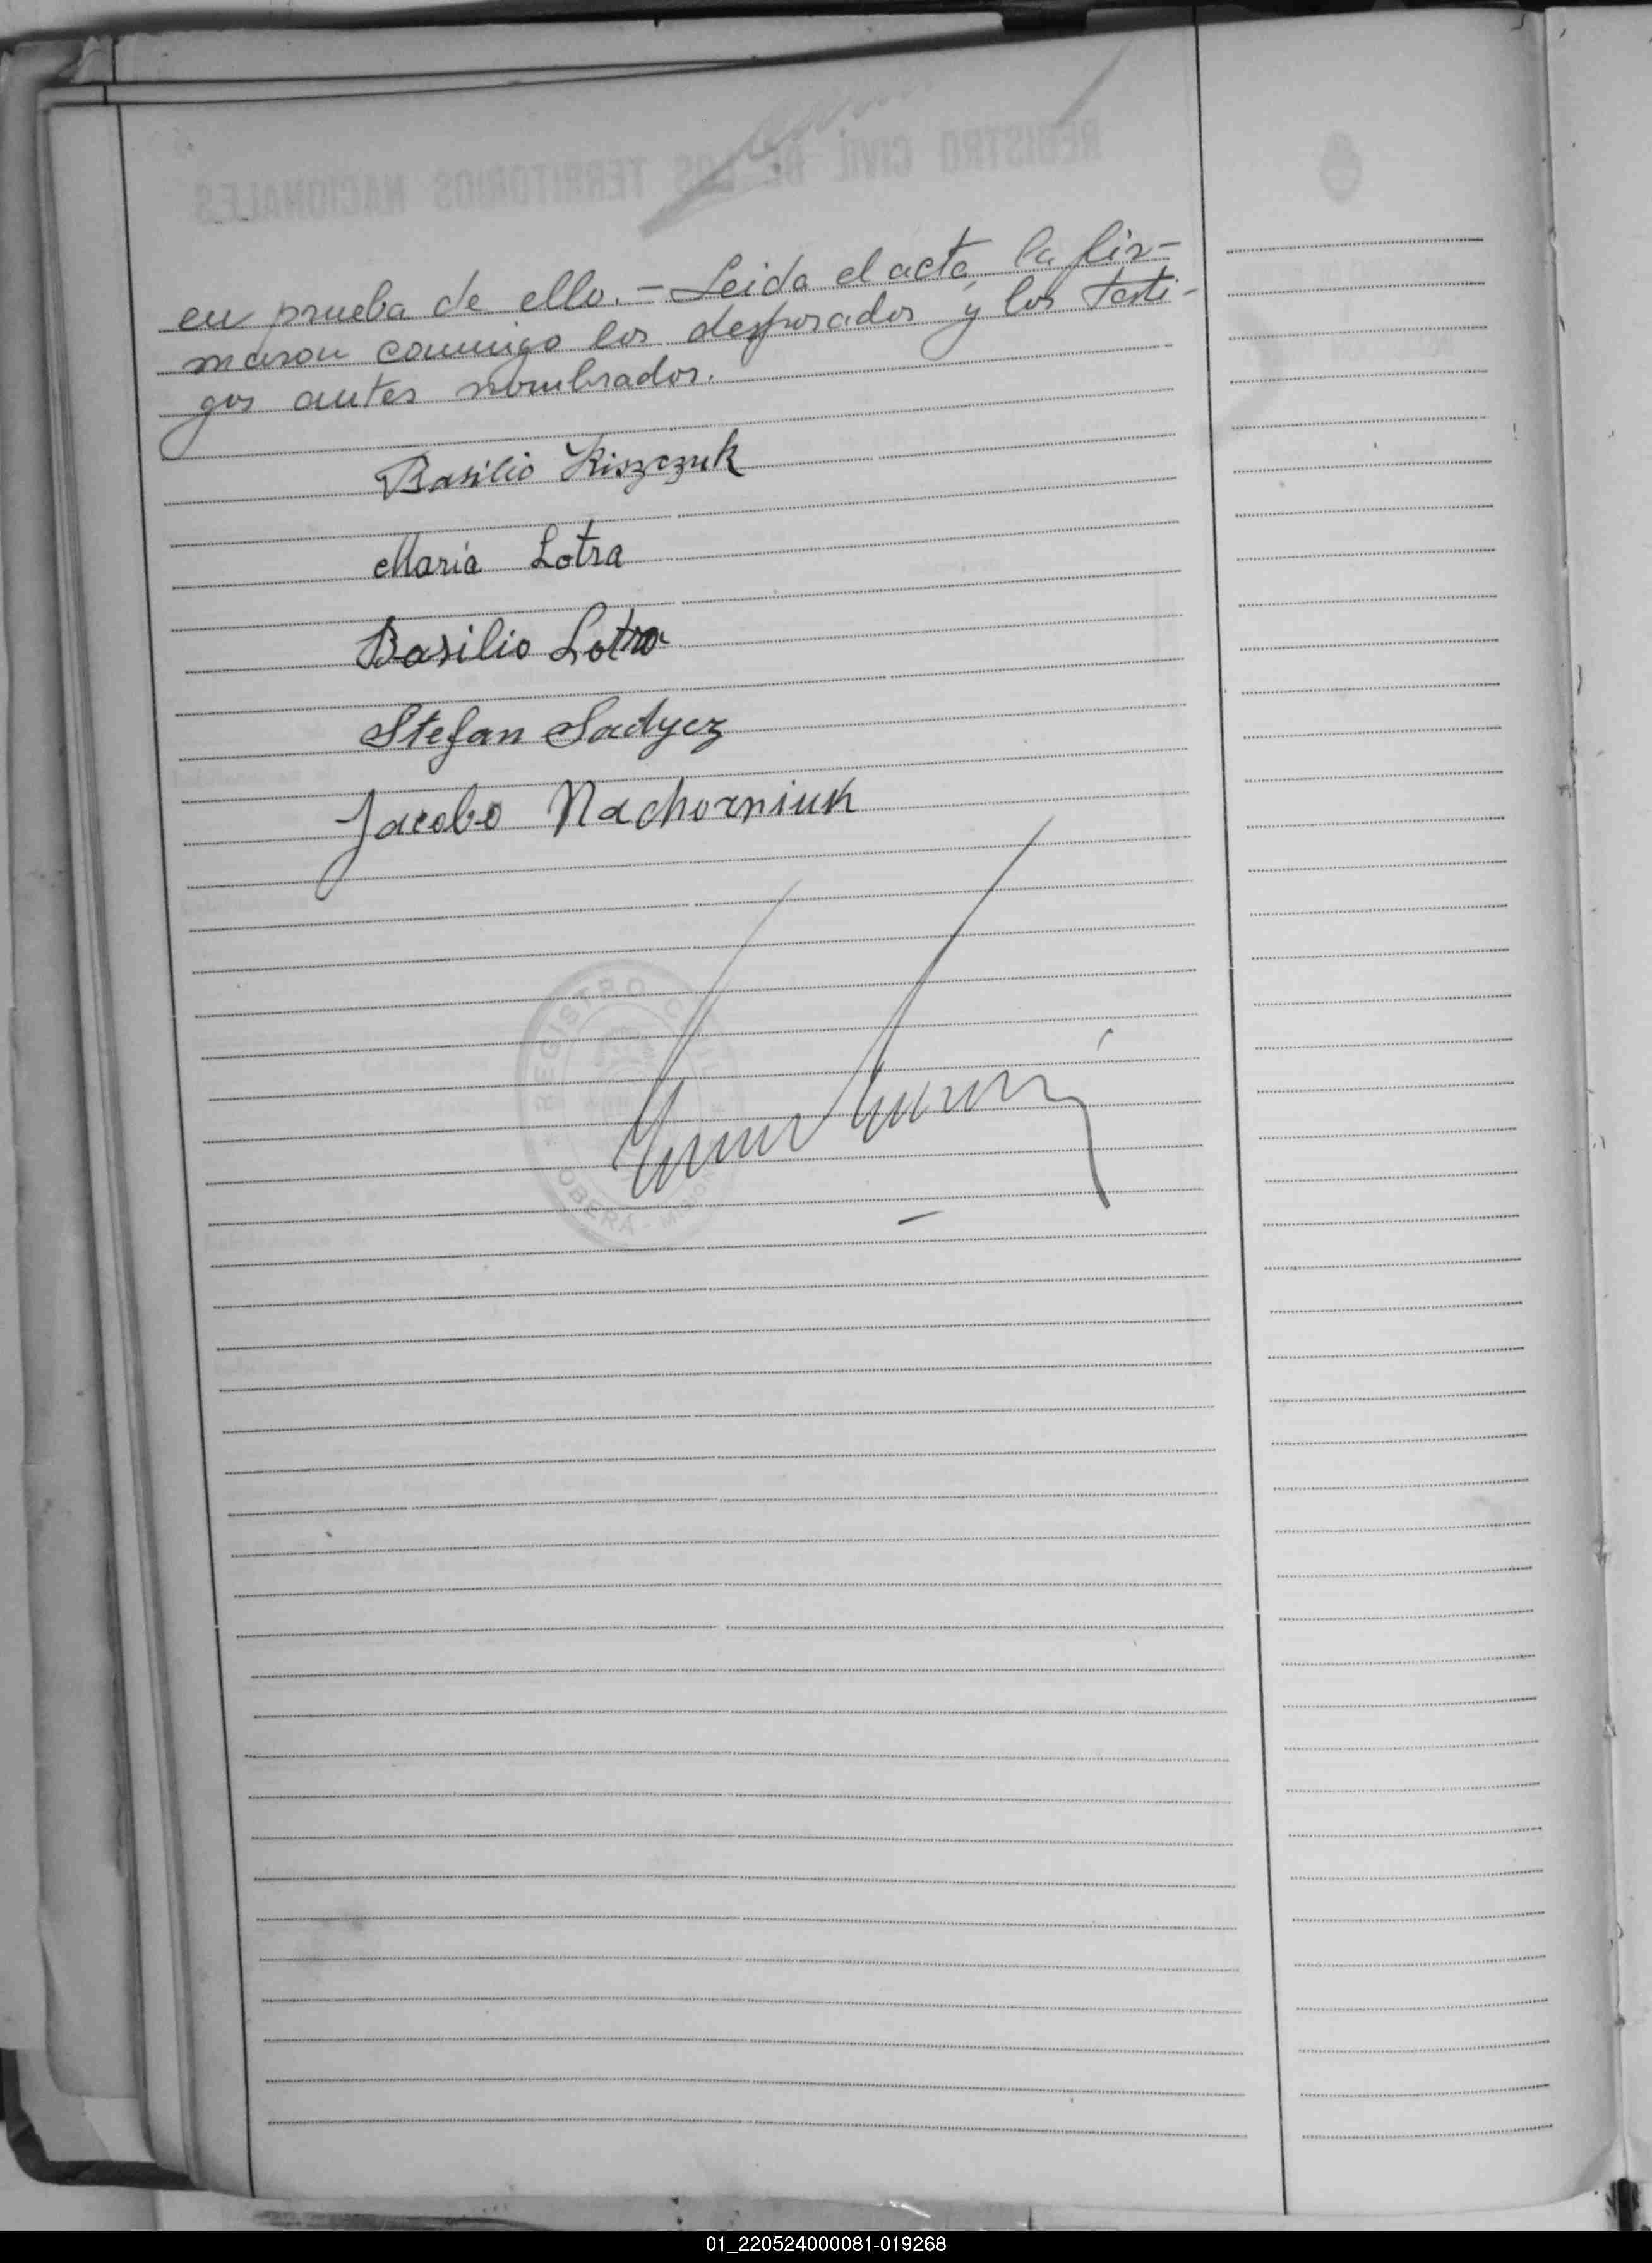 REGISTRO CIVIL DE LOS TERRITORIOS NACIONALES
en prueba de ello. – Leida el acta, la fir-
maron conmigo los desposados y los testi-
gos antes nombrados.
Basilio Kiszczuk
Maria Lotra
Basilio Lotra
Stefan Sadycz
Jacobo Nachorniuk
REGISTRO CIVIL
OBERÁ - MISIONES
01_220524000081-019268